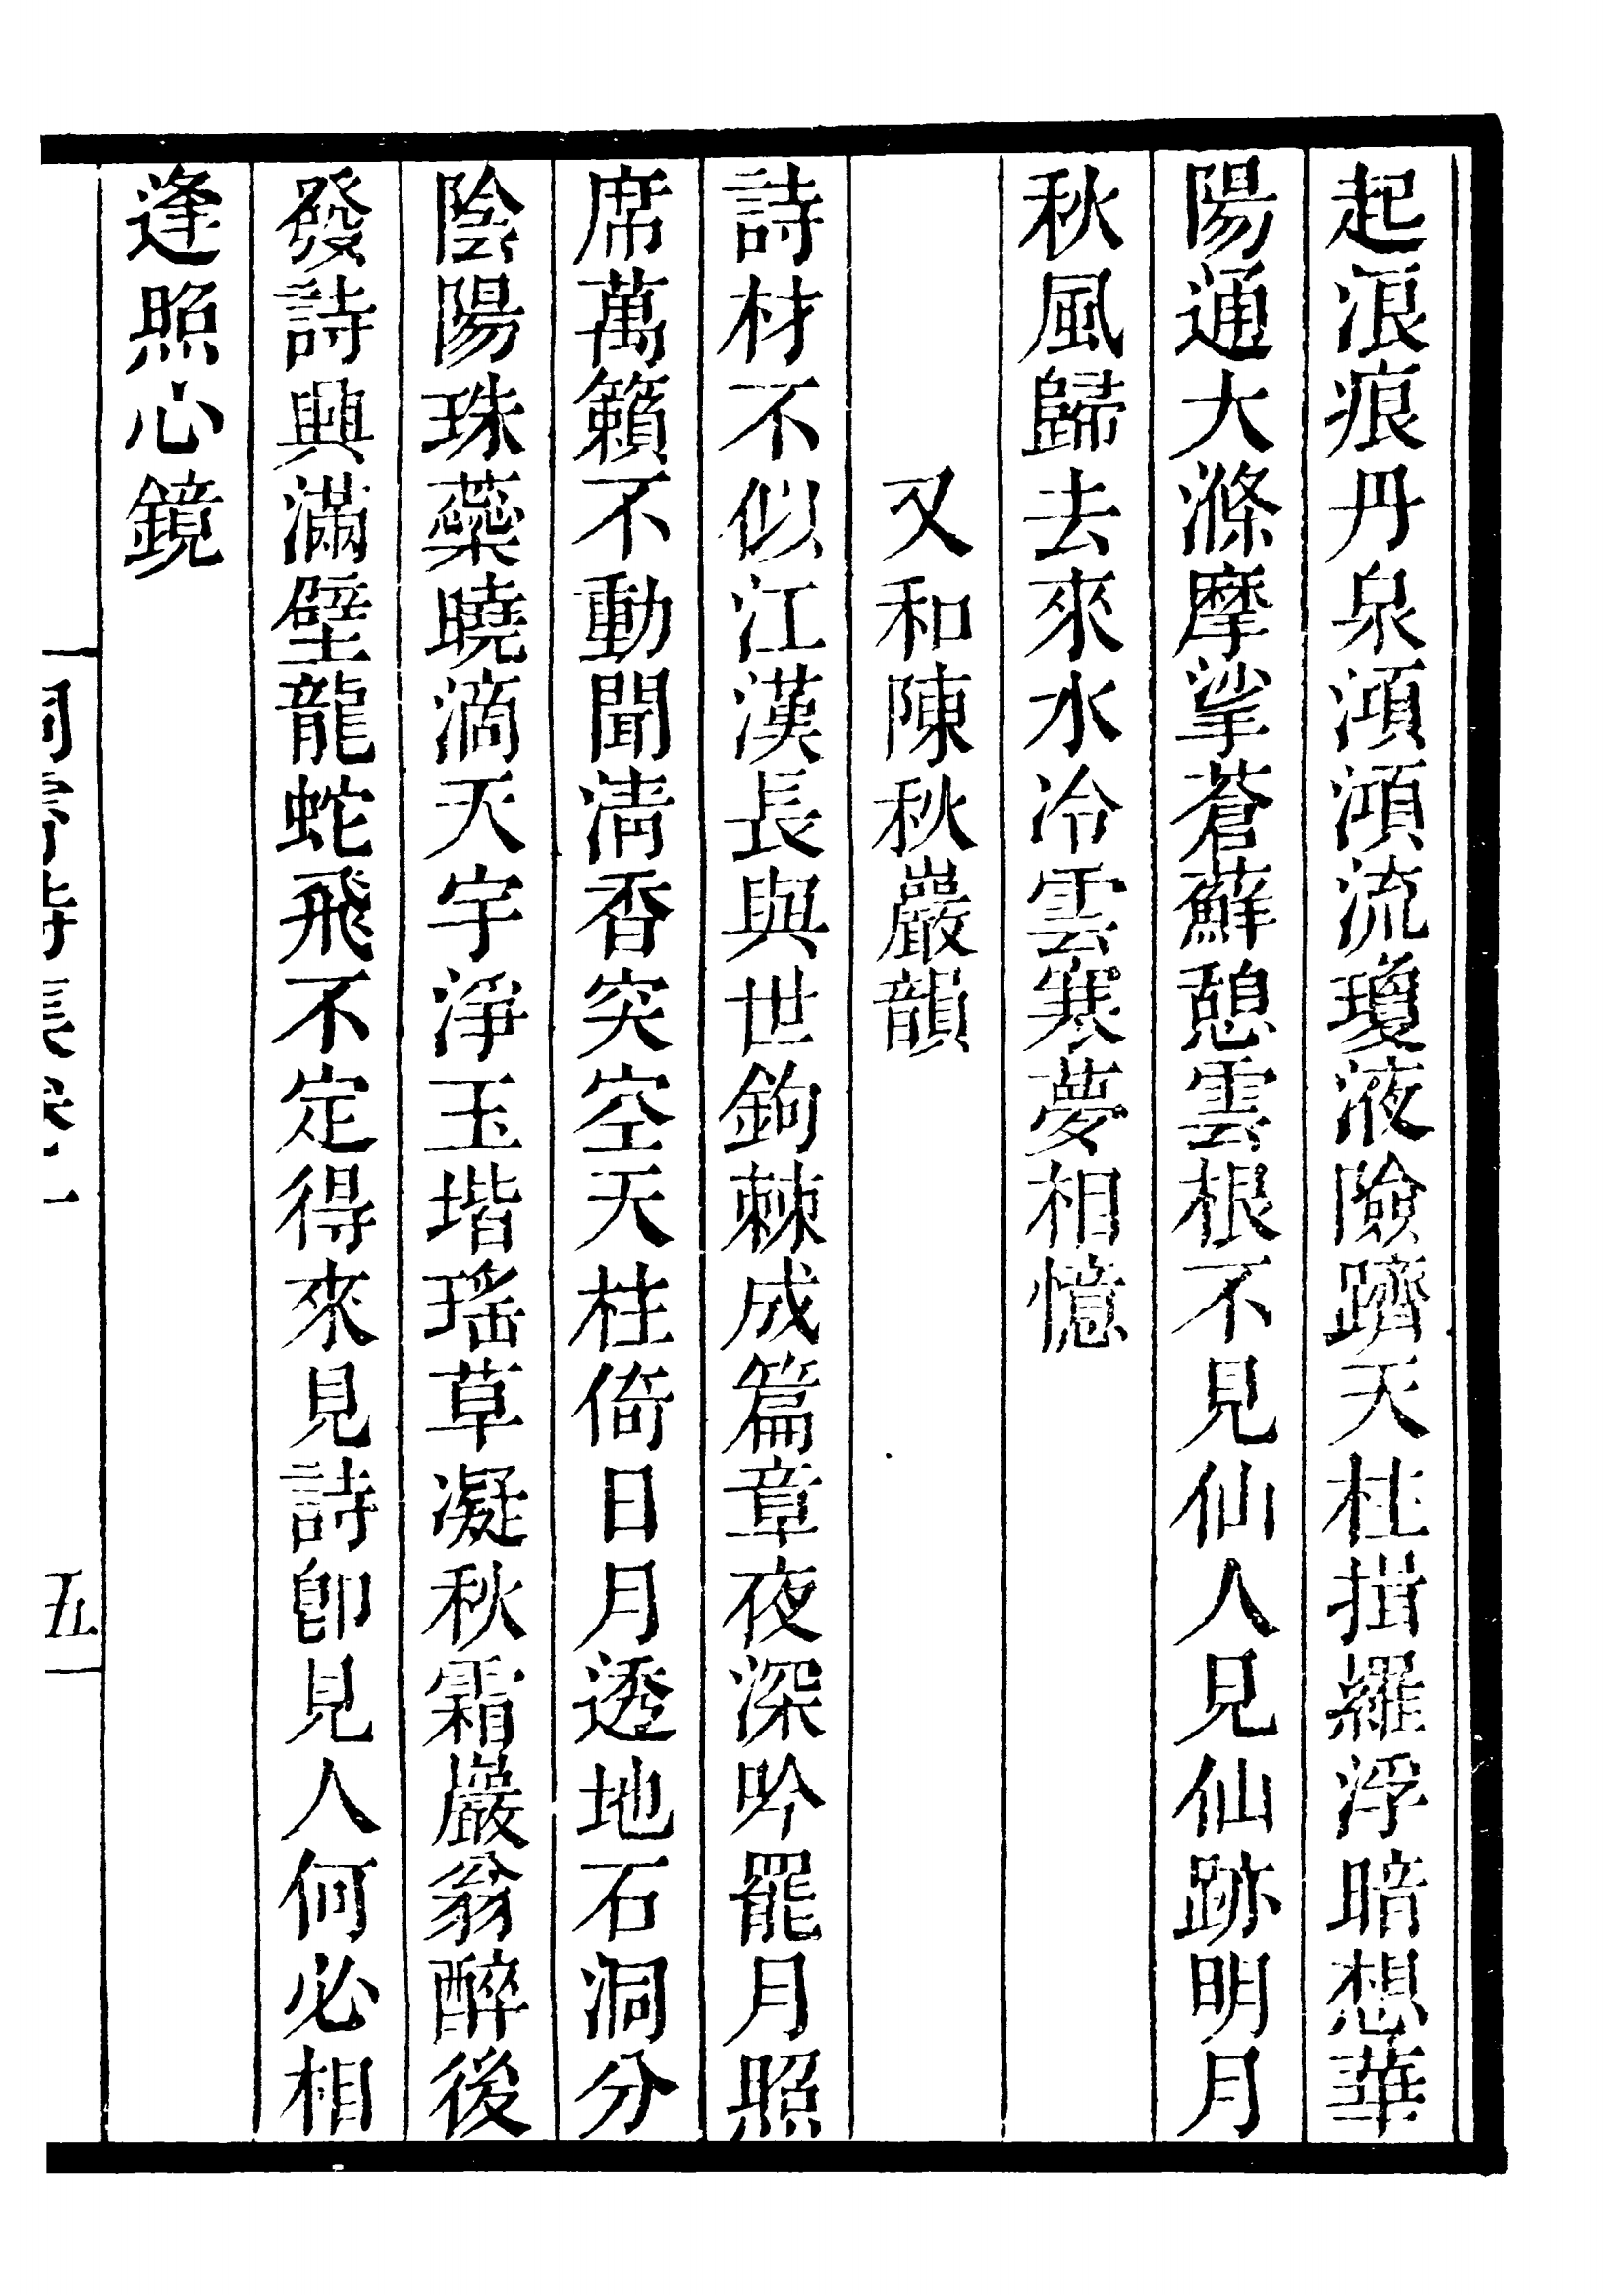 起浪痕丹泉澒澒流瓊液險躋天柱揖羅浮暗想華
陽通大滌摩挲蒼蘚憩雲根不見仙人見仙跡明月
秋風歸去來水冷雲寒夢相憶
又和陳秋巖韻
詩材不似江漢長與世鉤棘成篇章夜深吟罷月照
席萬籟不動聞清香突空天柱倚日月透地石洞分
陰陽珠蘂曉滴天宇淨玉堦瑤草凝秋霜巖翁醉後
發詩興滿壁龍蛇飛不定得來見詩卽見人何必相
逢照心鏡
五